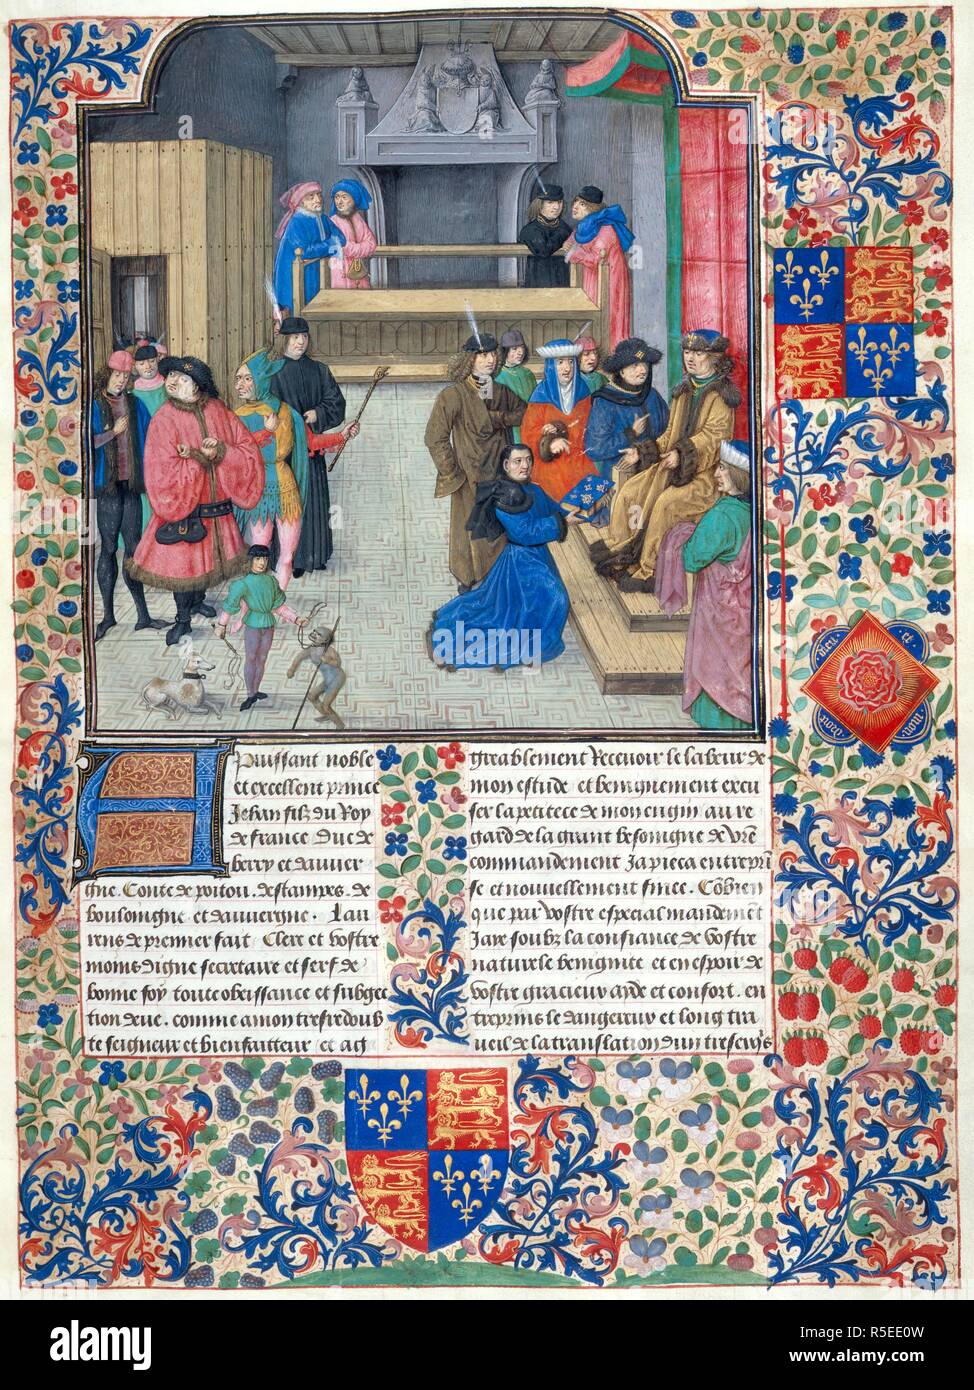 A Puissant noble
et excellent prince
Jehan filz du Roy
de france Duc de
berry et dauver
gne. Conte de poitou. destampes. de
boulongne et dauvergne. Lau
rens de premier fait Clerc et vostre
moins digne secretaire et serf de
bonne foy toute obeissance et subgec
tion deue. comme a mon tresredoub
te seigneur et bienfaitteur et ag
greablement Recevoir le labeur de
mon estude et benignement excu
ser la petitece de mon engin au re
gard de la grant besongne de vr̄e
commandement Ja pieca entrepri
se et nouvellement finee. Cōbien
que par vostre especial mandemēt
Jaye soubz la confiance de vostre
naturele benignite et en espoir de
vostre gracieux ayde et confort. en
treprins le dangereux et long tra
ueil de la translation dun tresexq̄s
dieu et mon
alamy
Image ID: R5EE0W
www.alamy.com